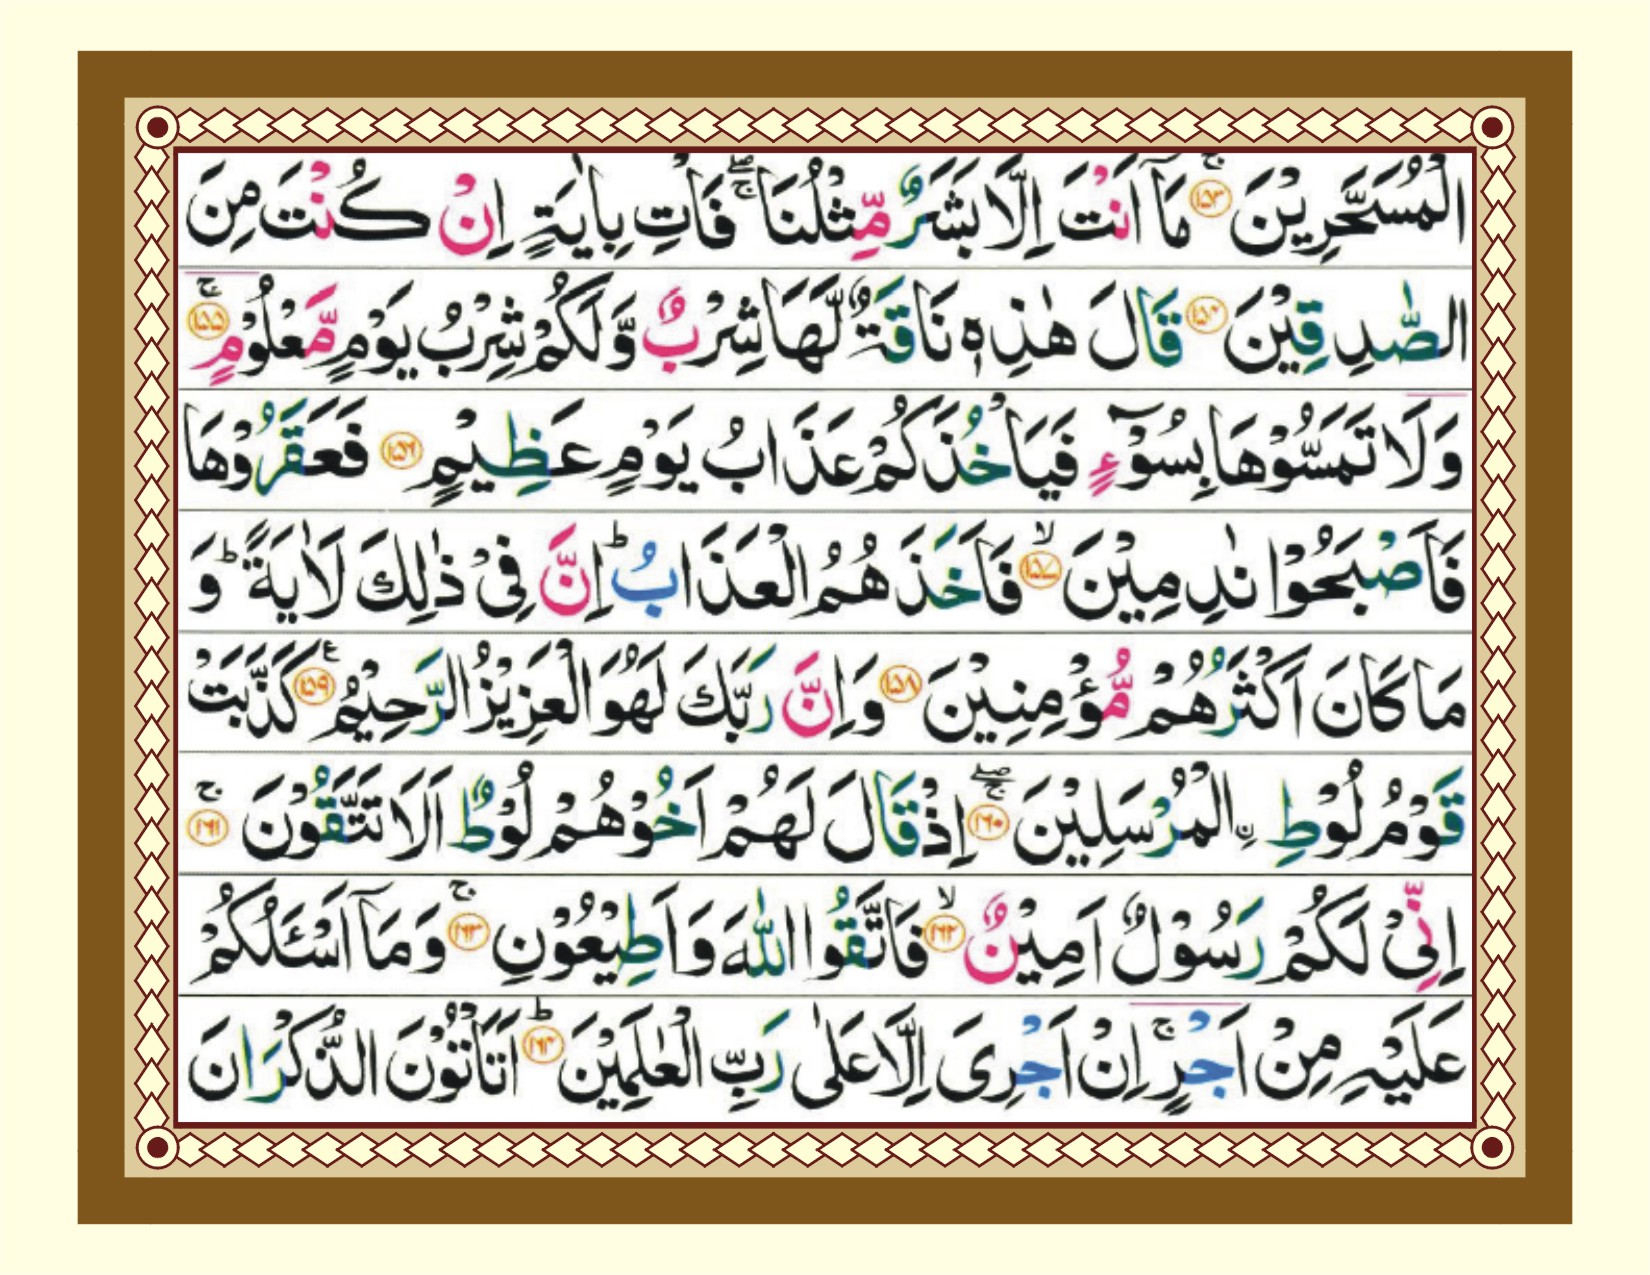 الْمُسَحَّرِيْنَ ۚ‏﴿۱۵۳﴾ مَاۤ اَنْتَ اِلَّا بَشَرٌ مِّثْلُنَا ۖۚ فَاْتِ بِاٰيَةٍ اِنْ كُنْتَ مِنَ
الصّٰدِقِيْنَ ﴿۱۵۴﴾ قَالَ هٰذِهٖ نَاقَةٌ لَّهَا شِرْبٌ وَّلَكُمْ شِرْبُ يَوْمٍ مَّعْلُوْمٍ ۚ‏﴿۱۵۵﴾
وَلَا تَمَسُّوْهَا بِسُوْٓءٍ فَيَاْخُذَكُمْ عَذَابُ يَوْمٍ عَظِيْمٍ ﴿۱۵۶﴾ فَعَقَرُوْهَا
فَاَصْبَحُوْا نٰدِمِيْنَ ۙ‏﴿۱۵۷﴾ فَاَخَذَهُمُ الْعَذَابُ ؕ اِنَّ فِىْ ذٰلِكَ لَاٰيَةً ؕ وَ
مَا كَانَ اَكْثَرُهُمْ مُّؤْمِنِيْنَ ﴿۱۵۸﴾ وَاِنَّ رَبَّكَ لَهُوَ الْعَزِيْزُ الرَّحِيْمُ ﴿۱۵۹﴾ ع كَذَّبَتْ
قَوْمُ لُوْطِ ۨالْمُرْسَلِيْنَ ۖۚ‏﴿۱۶۰﴾ اِذْ قَالَ لَهُمْ اَخُوْهُمْ لُوْطٌ اَلَا تَتَّقُوْنَ ۚ‏﴿۱۶۱﴾
اِنِّىْ لَكُمْ رَسُوْلٌ اَمِيْنٌ ۙ‏﴿۱۶۲﴾ فَاتَّقُوا اللّٰهَ وَاَطِيْعُوْنِ ۚ‏﴿۱۶۳﴾ وَمَاۤ اَسْـَٔـلُكُمْ
عَلَيْهِ مِنْ اَجْرٍ ۚ اِنْ اَجْرِىَ اِلَّا عَلٰى رَبِّ الْعٰلَمِيْنَ ؕ‏﴿۱۶۴﴾ اَتَاْتُوْنَ الذُّكْرَانَ